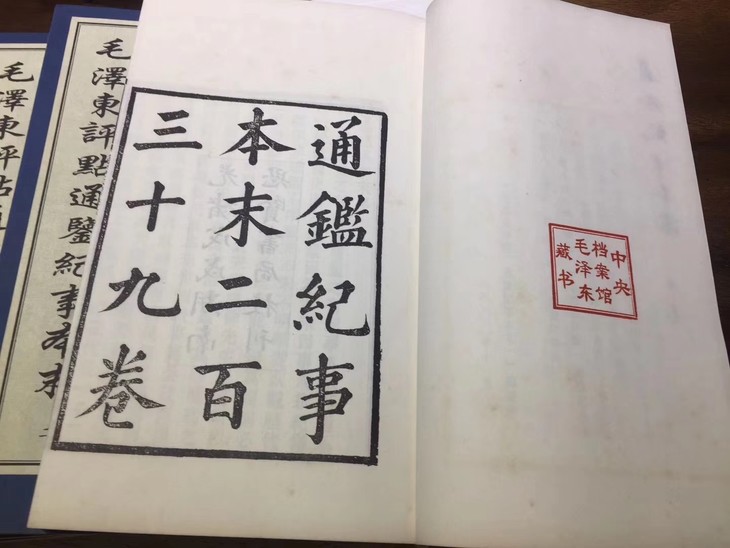 通鑑紀事
本末二百
三十九卷
中央
档案馆
毛泽东
藏书
毛澤東評點通鑒紀事本末
毛澤東評點